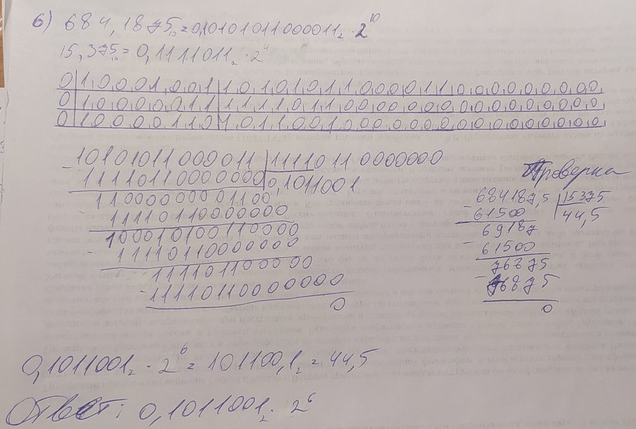 6) 684,1875₁₀=0,10101011000011₂ · 2^10
15,375₁₀=0,1111011₂ · 2^4
0 1 0 0 0 1 0 0 1 1 0 1 0 1 0 1 1 0 0 0 0 1 1 0 0 0 0 0 0 0 0 0
0 1 0 0 0 0 0 1 1 1 1 1 1 0 1 1 0 0 0 0 0 0 0 0 0 0 0 0 0 0 0 0
0 1 0 0 0 0 1 1 0 1 0 1 1 0 0 1 0 0 0 0 0 0 0 0 0 0 0 0 0 0 0 0
10101011000011 | 11110110000000
- 11110110000000 | 0,1011001
11000000001100
- 11110110000000
100010100110000
- 11110110000000
11110110000000
- 11110110000000
0
Проверка
684187,5 | 15375
- 61500 | 44,5
69187
- 61500
76875
- 76875
0
0,1011001₂ · 2^6 = 101100,1₂ = 44,5
Ответ: 0,1011001₂ · 2^6